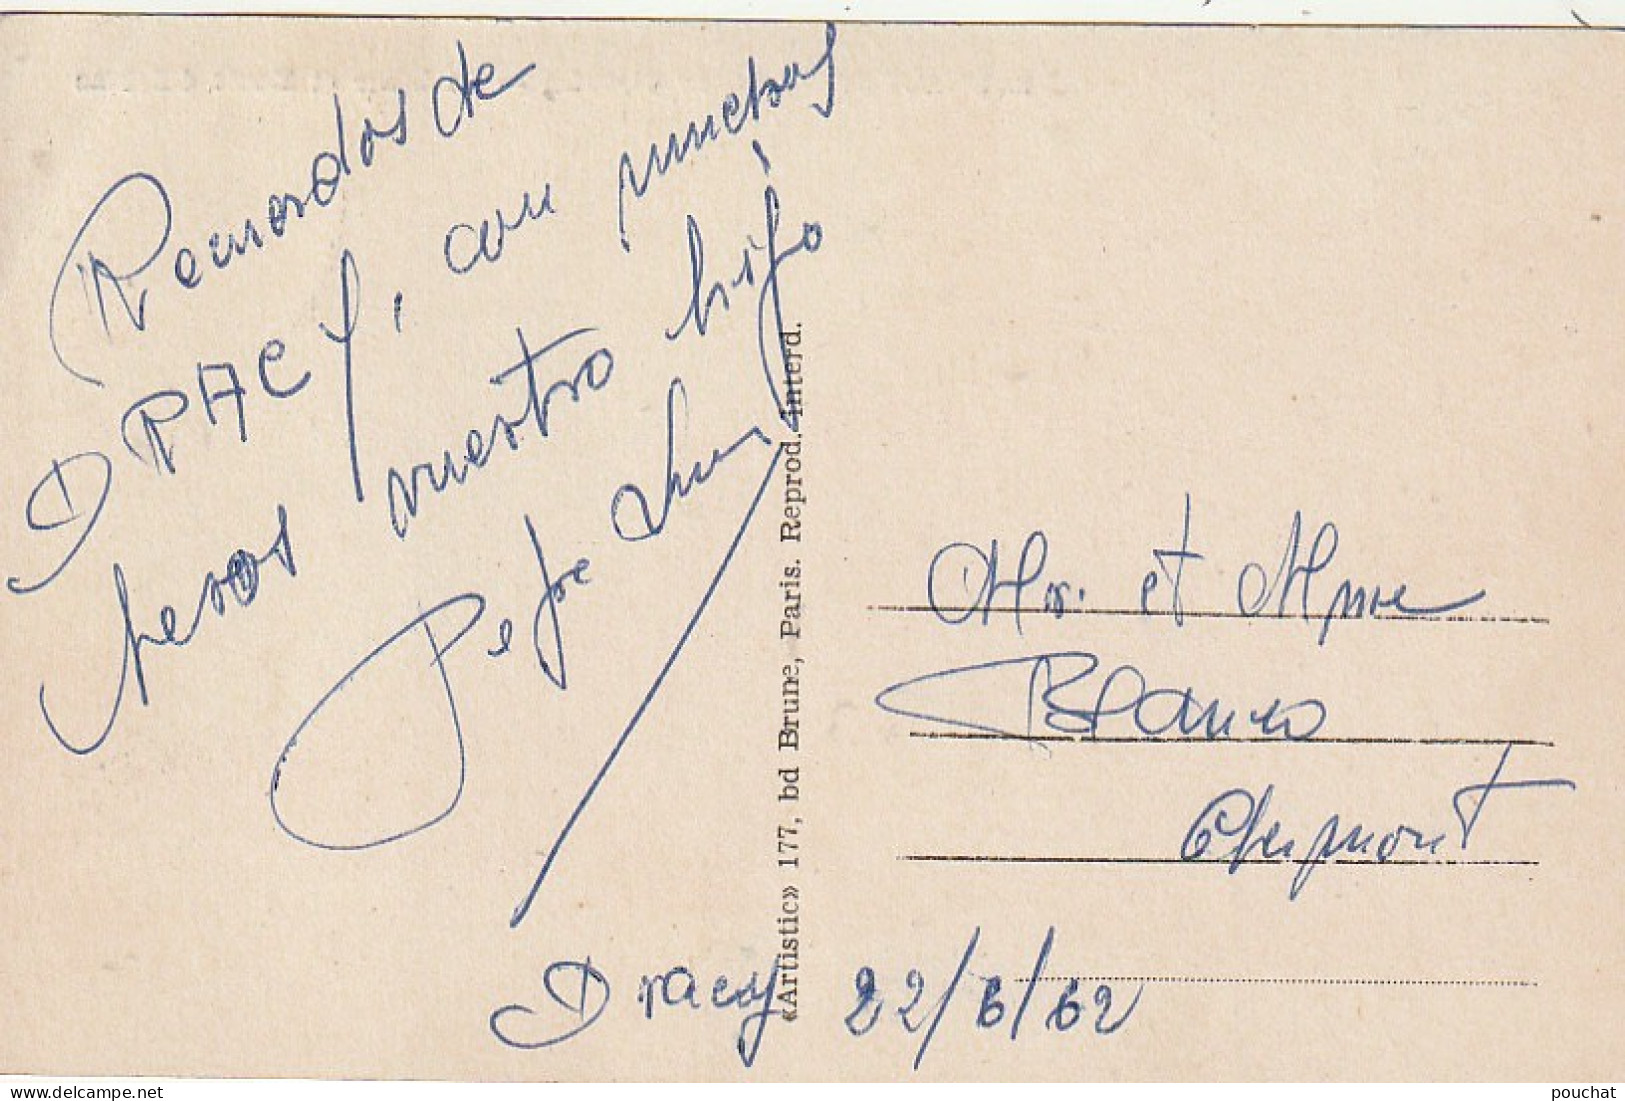 Recuerdos de
DRACY, con muchos
besos vuestro hijo
Pepe Luis
«Artistic» 177, bd Brune, Paris. Reprod. interd.
Mr. et Mme
Blanco
Clermont
Dracy 22/6/62
pouchat